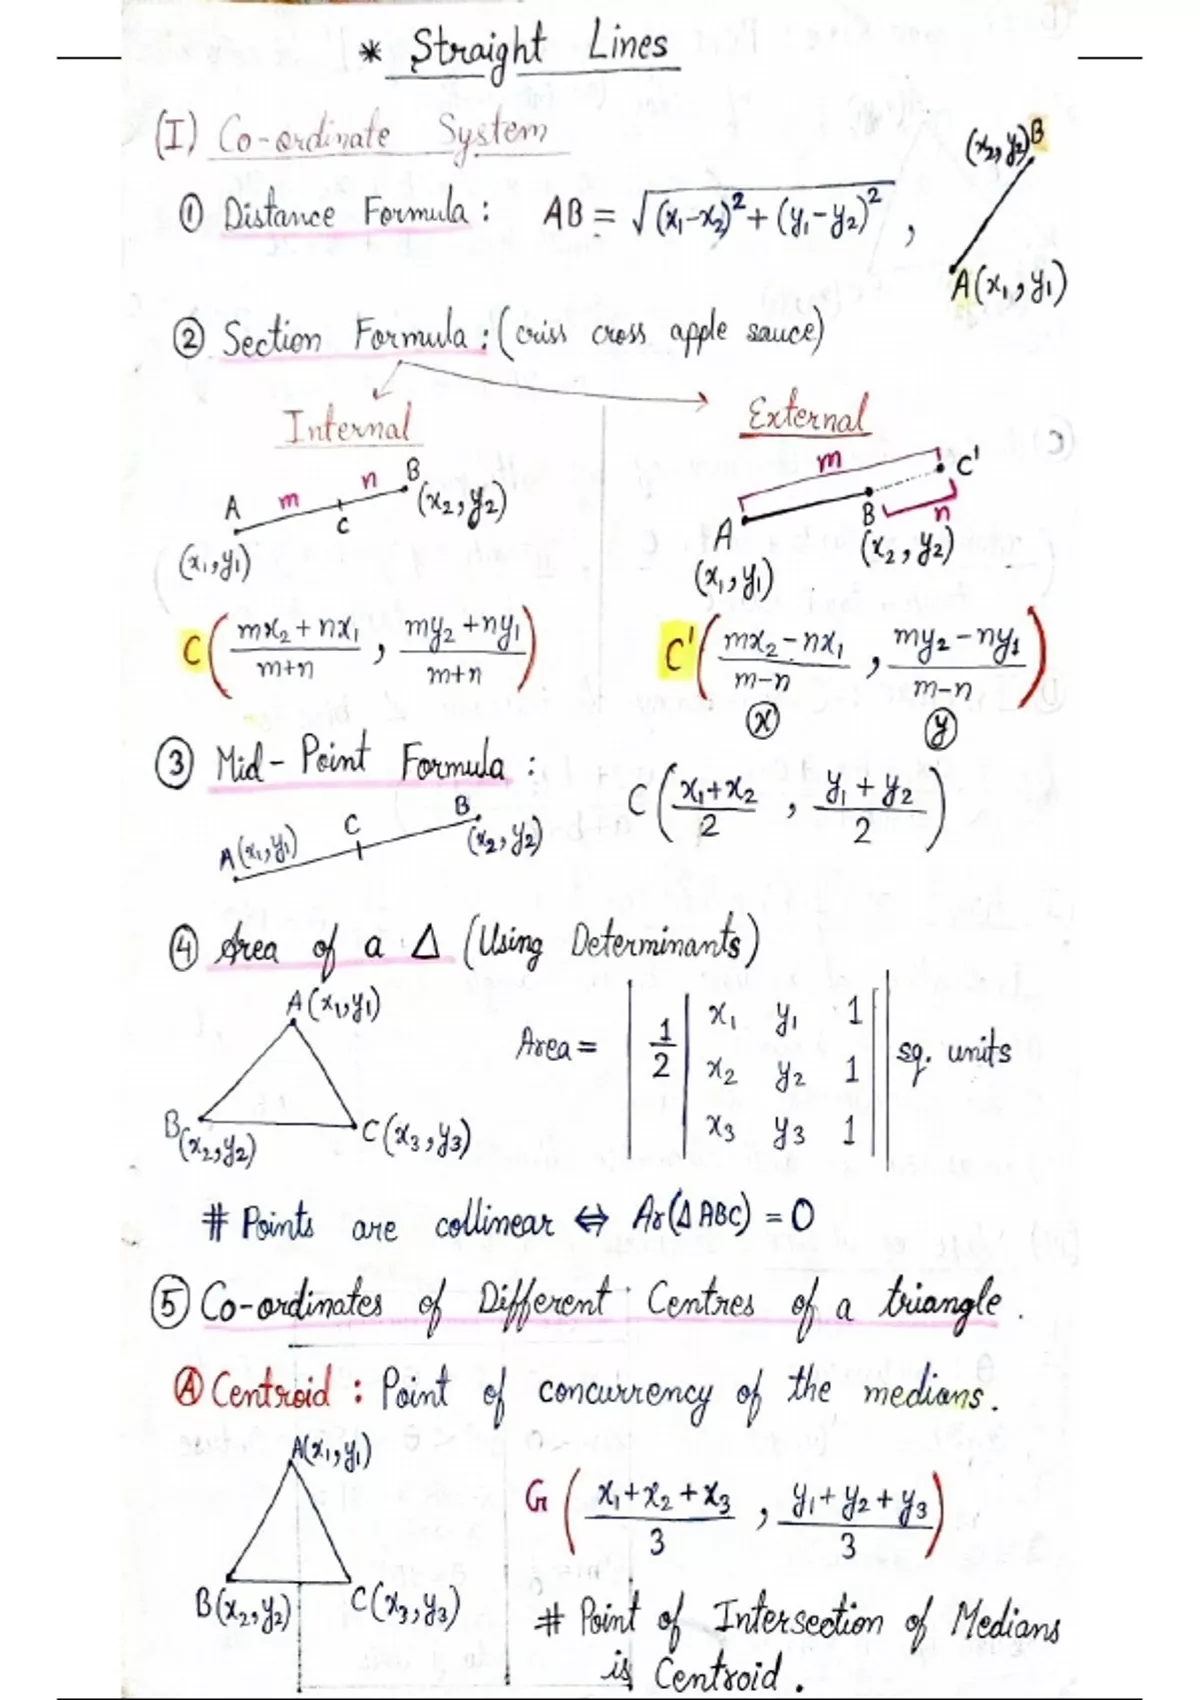 * Straight Lines
(I) Co-ordinate System
① Distance Formula : AB = √(x₁-x₂)² + (y₁-y₂)² ,
(x₂, y₂) B
A(x₁, y₁)
② Section Formula : (criss cross apple sauce)
Internal
External
A m n B (x₂, y₂)
C
(x₁, y₁)
m C'
A B n
(x₁, y₁) (x₂, y₂)
C ( mx₂ + nx₁ / m+n , my₂ + ny₁ / m+n )
C' ( mx₂ - nx₁ / m-n , my₂ - ny₁ / m-n )
ⓧ ⓨ
③ Mid-Point Formula : C ( x₁+x₂ / 2 , y₁ + y₂ / 2 )
A(x₁, y₁) C B (x₂, y₂)
④ Area of a Δ (Using Determinants)
A(x₁, y₁)
B(x₂, y₂) C(x₃, y₃)
Area = | 1/2 | x₁ y₁ 1 | | sq. units
x₂ y₂ 1
x₃ y₃ 1
# Points are collinear ⇔ Ar(ΔABC) = 0
⑤ Co-ordinates of Different Centres of a triangle .
Ⓐ Centroid : Point of concurrency of the medians.
A(x₁, y₁)
G ( x₁+x₂+x₃ / 3 , y₁+y₂+y₃ / 3 )
B(x₂, y₂) C(x₃, y₃)
# Point of Intersection of Medians
is Centroid .